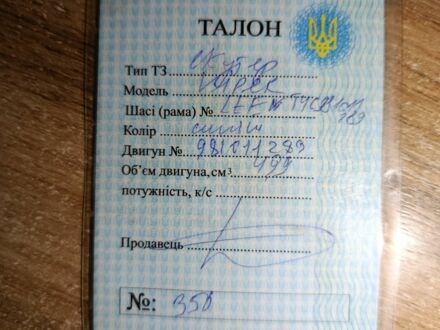 ТАЛОН
Тип ТЗ скутер
Модель
Шасі (рама) №
Колір синій
Двигун № 981011289
Об'єм двигуна,см³ 49,9
потужність, к/с
Продавець
№: 350